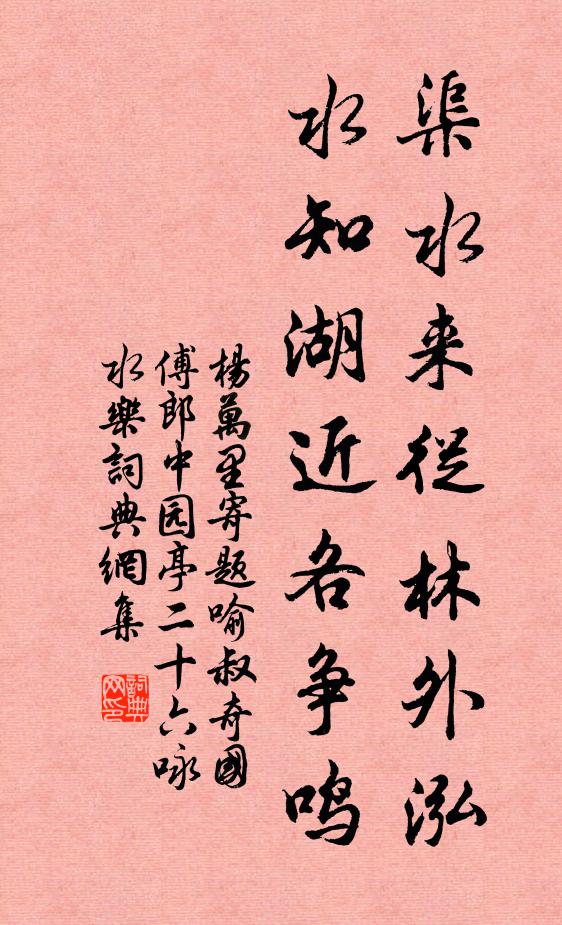 渠水来從林外泓
水知湖近各争鳴
楊萬里寄題喻叔奇國
傅郎中园亭二十六咏
水樂詞典網集
詞典
网印